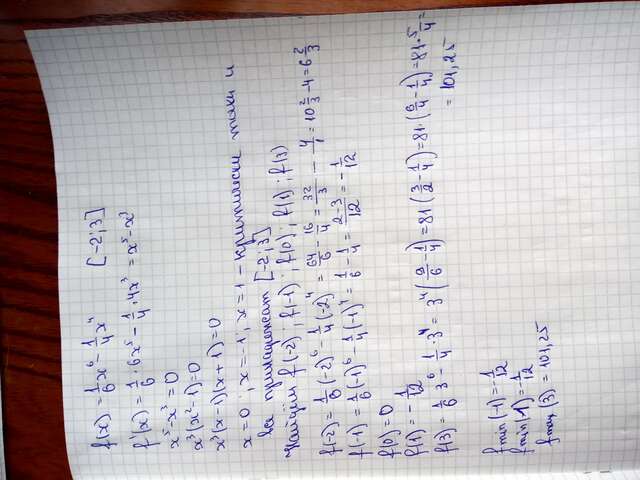 f(x) = 1/6 x⁶ - 1/4 x⁴ [-2;3]
f'(x) = 1/6 · 6x⁵ - 1/4 · 4x³ = x⁵ - x³
x⁵ - x³ = 0
x³(x² - 1) = 0
x³(x - 1)(x + 1) = 0
x = 0; x = -1; x = 1 - критически точки и
все принадлежат [-2;3]
Найдём f(-2); f(-1); f(0); f(1); f(3)
f(-2) = 1/6 (-2)⁶ - 1/4 (-2)⁴ = 64/6 - 16/4 = 32/3 - 4/1 = 10 2/3 - 4 = 6 2/3
f(-1) = 1/6 (-1)⁶ - 1/4 (-1)⁴ = 1/6 - 1/4 = 2-3/12 = - 1/12
f(0) = 0
f(1) = - 1/12
f(3) = 1/6 3⁶ - 1/4 · 3⁴ = 3⁴ (9/6 - 1/4) = 81 (3/2 - 1/4) = 81 · (6/4 - 1/4) = 81 · 5/4 =
= 101,25
fmin (-1) = - 1/12
fmin (1) = - 1/12
fmax (3) = 101,25